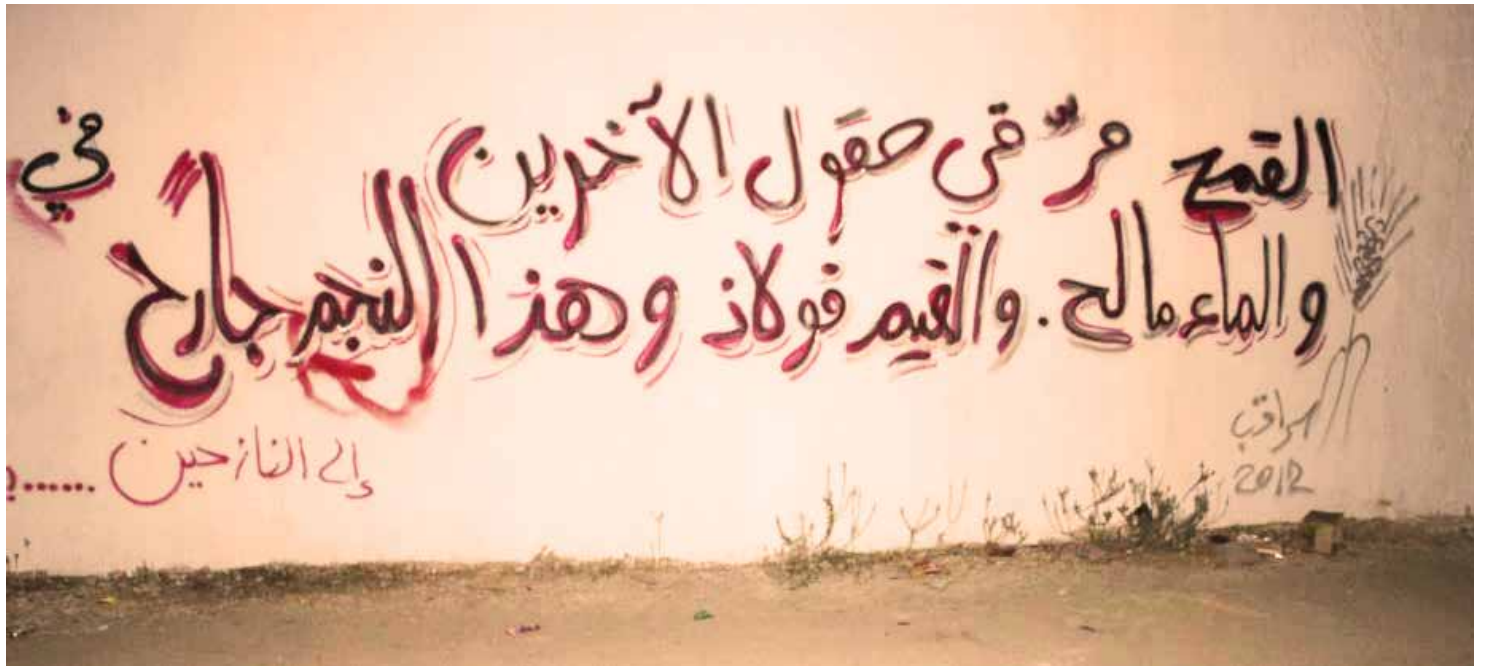 القمح مرّ في حقول الآخرين
في
والماء مالح . والغيم فولاذ وهذا النجم جارح
إلى النازحين ......
المراقب
2012